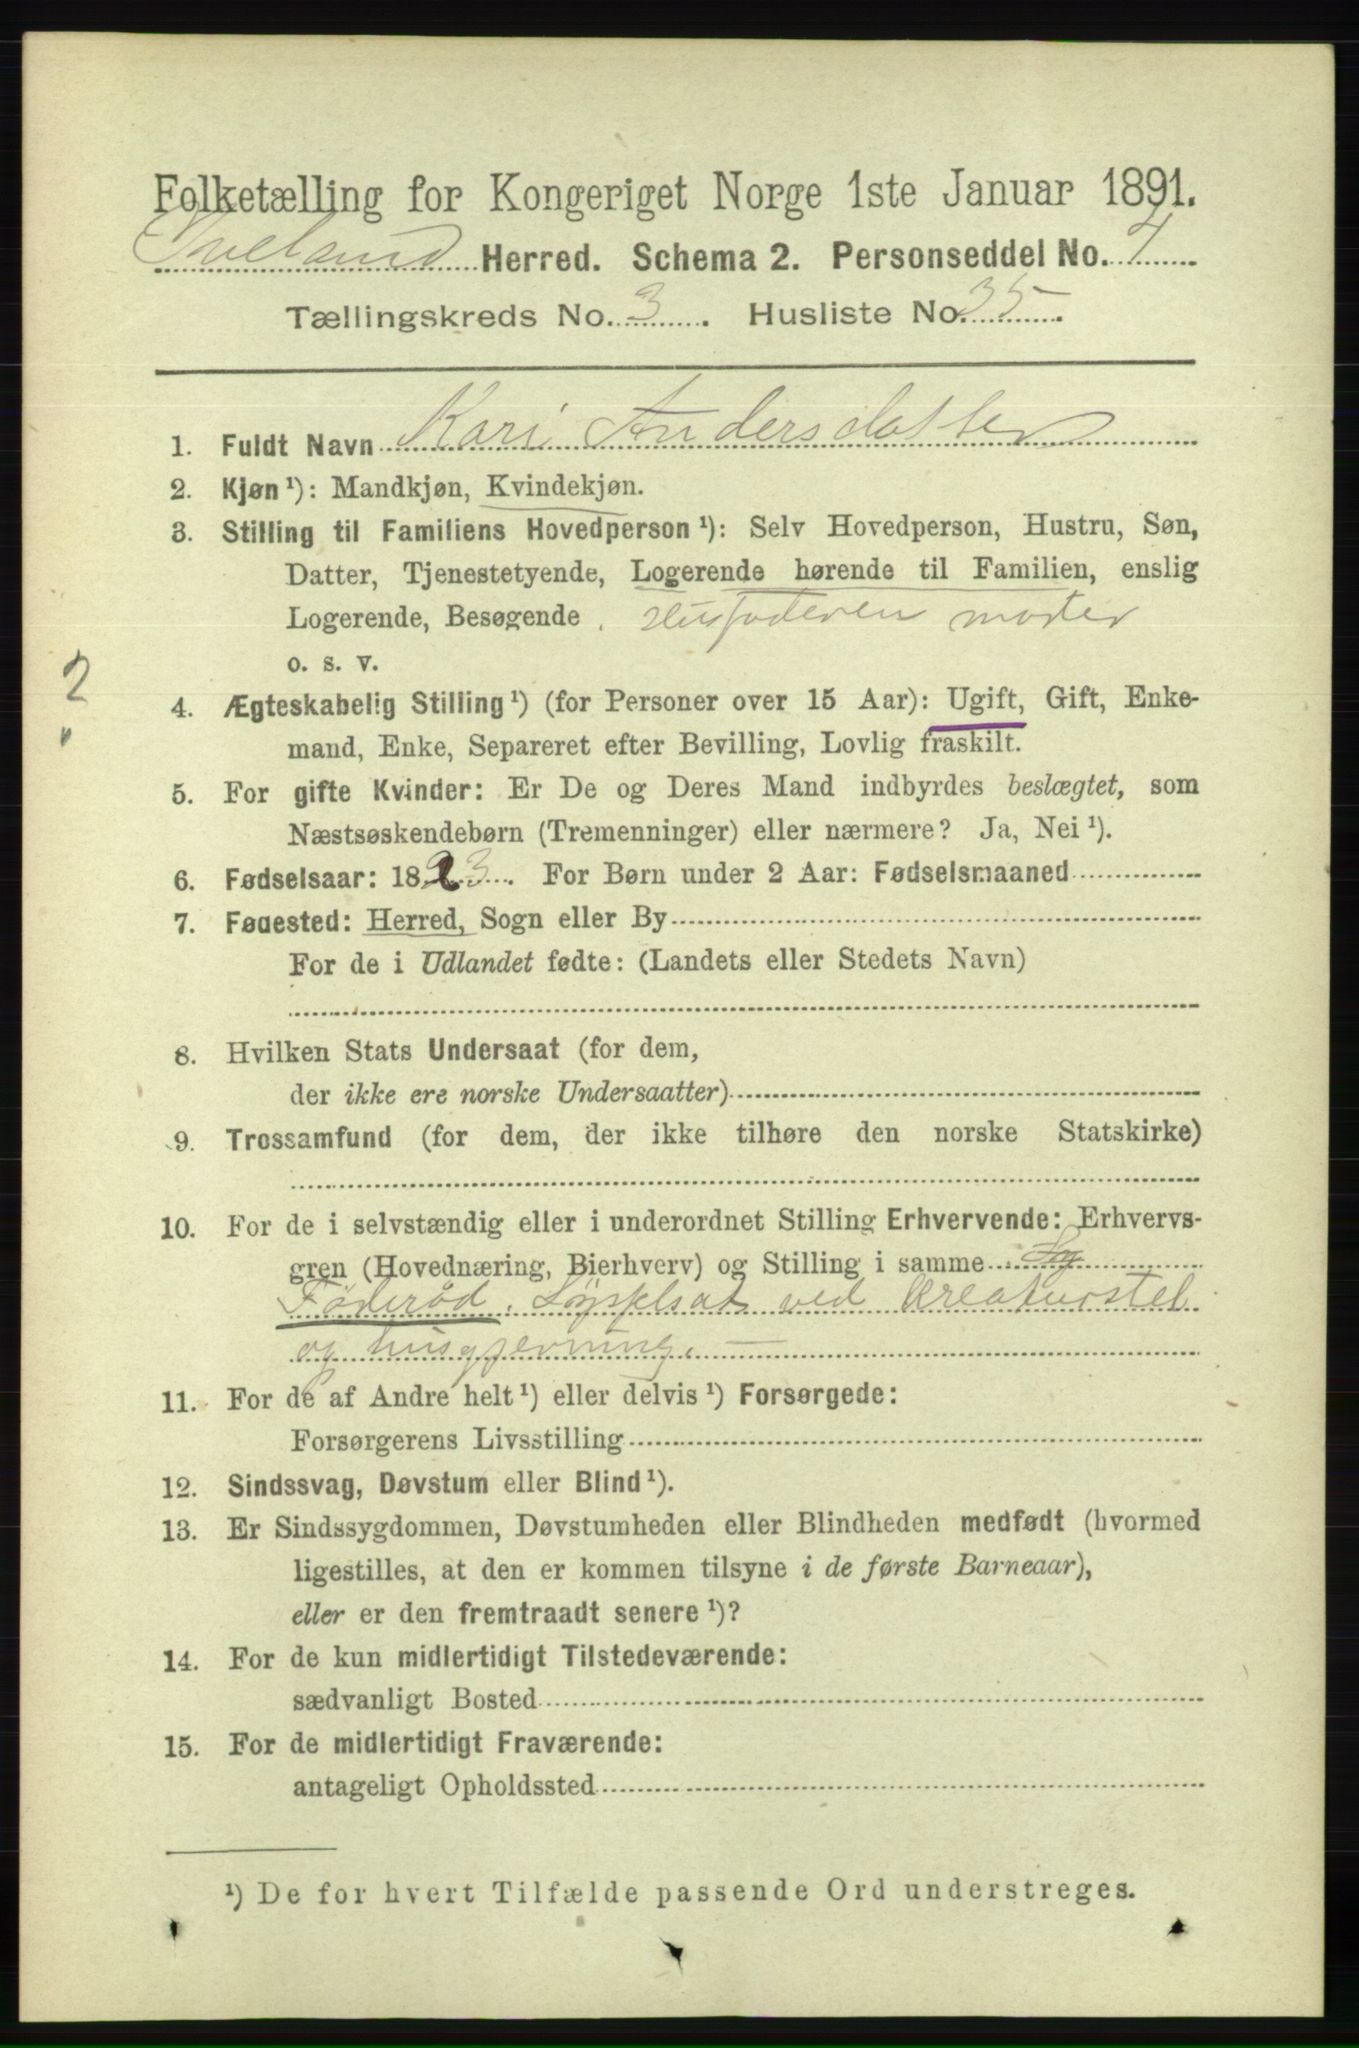 Folketælling for Kongeriget Norge 1ste Januar 1891.
Iveland Herred. Schema 2. Personseddel No. 4
Tællingskreds No. 3. Husliste No. 35.
1. Fuldt Navn Kari Andersdatter
2. Kjøn¹): Mandkjøn, Kvindekjøn.
3. Stilling til Familiens Hovedperson¹): Selv Hovedperson, Hustru, Søn,
Datter, Tjenestetyende, Logerende hørende til Familien, enslig
Logerende, Besøgende. Husfaderen moder
o. s. v.
2
4. Ægteskabelig Stilling¹) (for Personer over 15 Aar): Ugift, Gift, Enke-
mand, Enke, Separeret efter Bevilling, Lovlig fraskilt.
5. For gifte Kvinder: Er De og Deres Mand indbyrdes beslægtet, som
Næstsøskendebørn (Tremenninger) eller nærmere? Ja, Nei¹).
6. Fødselsaar: 1823. For Børn under 2 Aar: Fødselsmaaned
7. Fødested: Herred, Sogn eller By
For de i Udlandet fødte: (Landets eller Stedets Navn)
8. Hvilken Stats Undersaat (for dem,
der ikke ere norske Undersaatter)
9. Trossamfund (for dem, der ikke tilhøre den norske Statskirke)
10. For de i selvstændig eller i underordnet Stilling Erhvervende: Erhvervs-
gren (Hovednæring, Bierhverv) og Stilling i samme
Føderåd. Sysselsat ved kreaturstel
og husgjerning. —
11. For de af Andre helt¹) eller delvis¹) Forsørgede:
Forsørgerens Livsstilling
12. Sindssvag, Døvstum eller Blind¹).
13. Er Sindssygdommen, Døvstumheden eller Blindheden medfødt (hvormed
ligestilles, at den er kommen tilsyne i de første Barneaar),
eller er den fremtraadt senere¹)?
14. For de kun midlertidigt Tilstedeværende:
sædvanligt Bosted
15. For de midlertidigt Fraværende:
antageligt Opholdssted
¹) De for hvert Tilfælde passende Ord understreges.